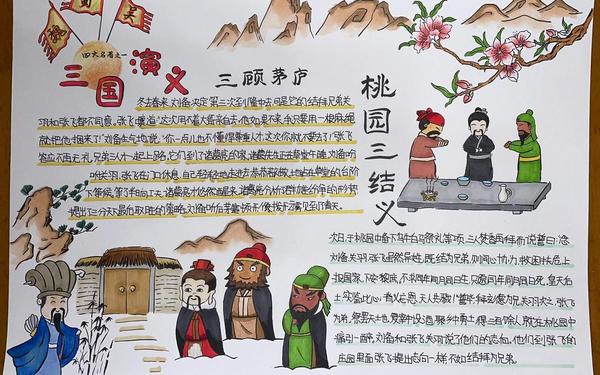 蜀
刘
关
四大名著之一
三国演义
三顾茅庐
冬去春来,刘备决定第三次到隆中去,可是它的结拜兄弟关
羽和张飞都不同意,张飞嚷道:"这次用不着大哥亲自去,他如果不来,我只要用一根麻绳
就把他捆来了!"刘备生气地说:"你一点儿也不懂得尊重人才,这次你就不要去了!"张飞
答应不再无礼,兄弟三人一起上路,它们到了诸葛亮的家,诸葛先生正在草堂午睡,刘备吩
咐关羽、张飞在门口休息,自己轻轻地走进去,恭恭敬敬地站在草堂的台阶
下等候,等了半响工夫,诸葛亮才悠然醒来,诸葛亮分析了群雄纷争的形势
提出了三分天下最后取胜的策略,刘备听后茅塞顿开,像拨开满见到了青天。
桃园三结义
次日,于桃园中备下乌牛白马祭礼等项,三人焚香再拜而说誓曰:"念
刘备关羽、张飞,虽然异姓,既结为兄弟,则同心协力,救困扶危,上
报国家,下安黎庶,不求同年同月同日生,只愿同年同月同日死,皇天后
土,实鉴此心,背义忘恩,天人共戮!"誓毕,拜玄德为兄,关羽次之,张飞
为弟,祭罢天地,复宰牛设酒,聚乡中勇士,得三百余人,就在桃园中
痛引一醉,刘备和张飞、关羽说了他们的志向,他们到张飞的
庄园里面,张飞提出志向一样,不如结拜为兄弟。